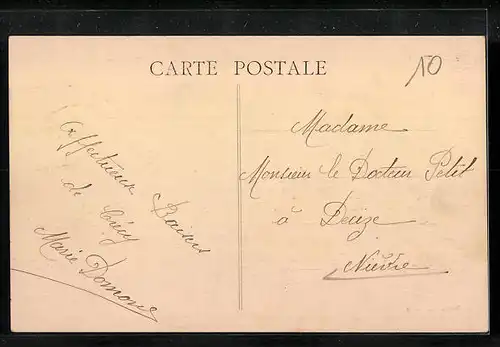 CARTE POSTALE
10
Affectueux Baisers
de Crécy
Marie
Madame
Monsieur le Docteur Petit
à Deuze
Nièvre